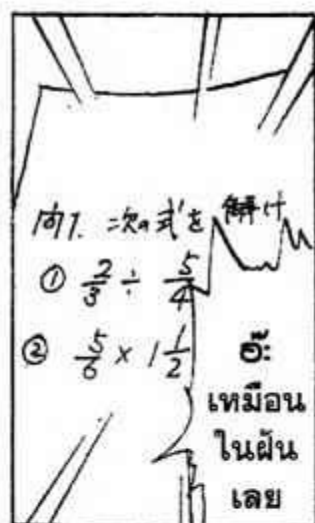 問1. 次の式を解け
① 2/3 ÷ 5/4
② 5/6 × 1 1/2
อ๊ะ
เหมือน
ในฝัน
เลย